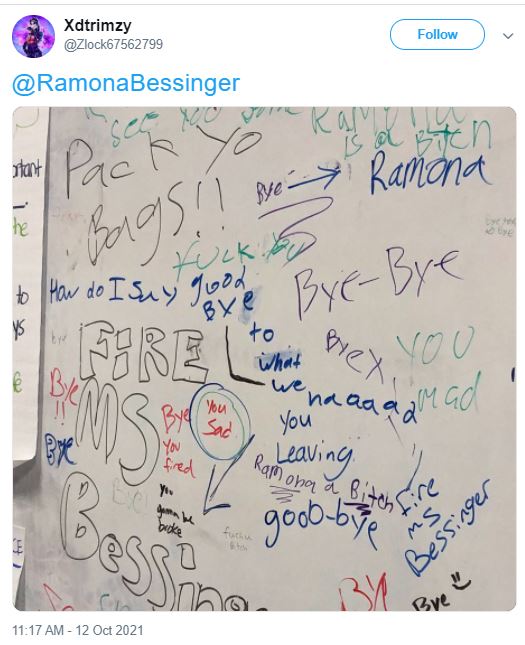 Xdtrimzy
@Zlock67562799
Follow
@RamonaBessinger
see you
Ramona
is a Bitch
Pack Yo
Bags!!
Bye
Ramona
ortant
he
to
ys
e
fuck you
How do I say good
BYe
Bye-Bye
to
what
we
naaaad
Byex
YOU
mad
FIRE
MS
Bessinger
Bye
!!
Bye
Bye
You
fired
You
Sad
You
Leaving.
Ramona a Bitch
goob-bye
fire
ms
Bessinger
Bye!
You
gonna be
broke
Bitch
BY
Bye
11:17 AM - 12 Oct 2021